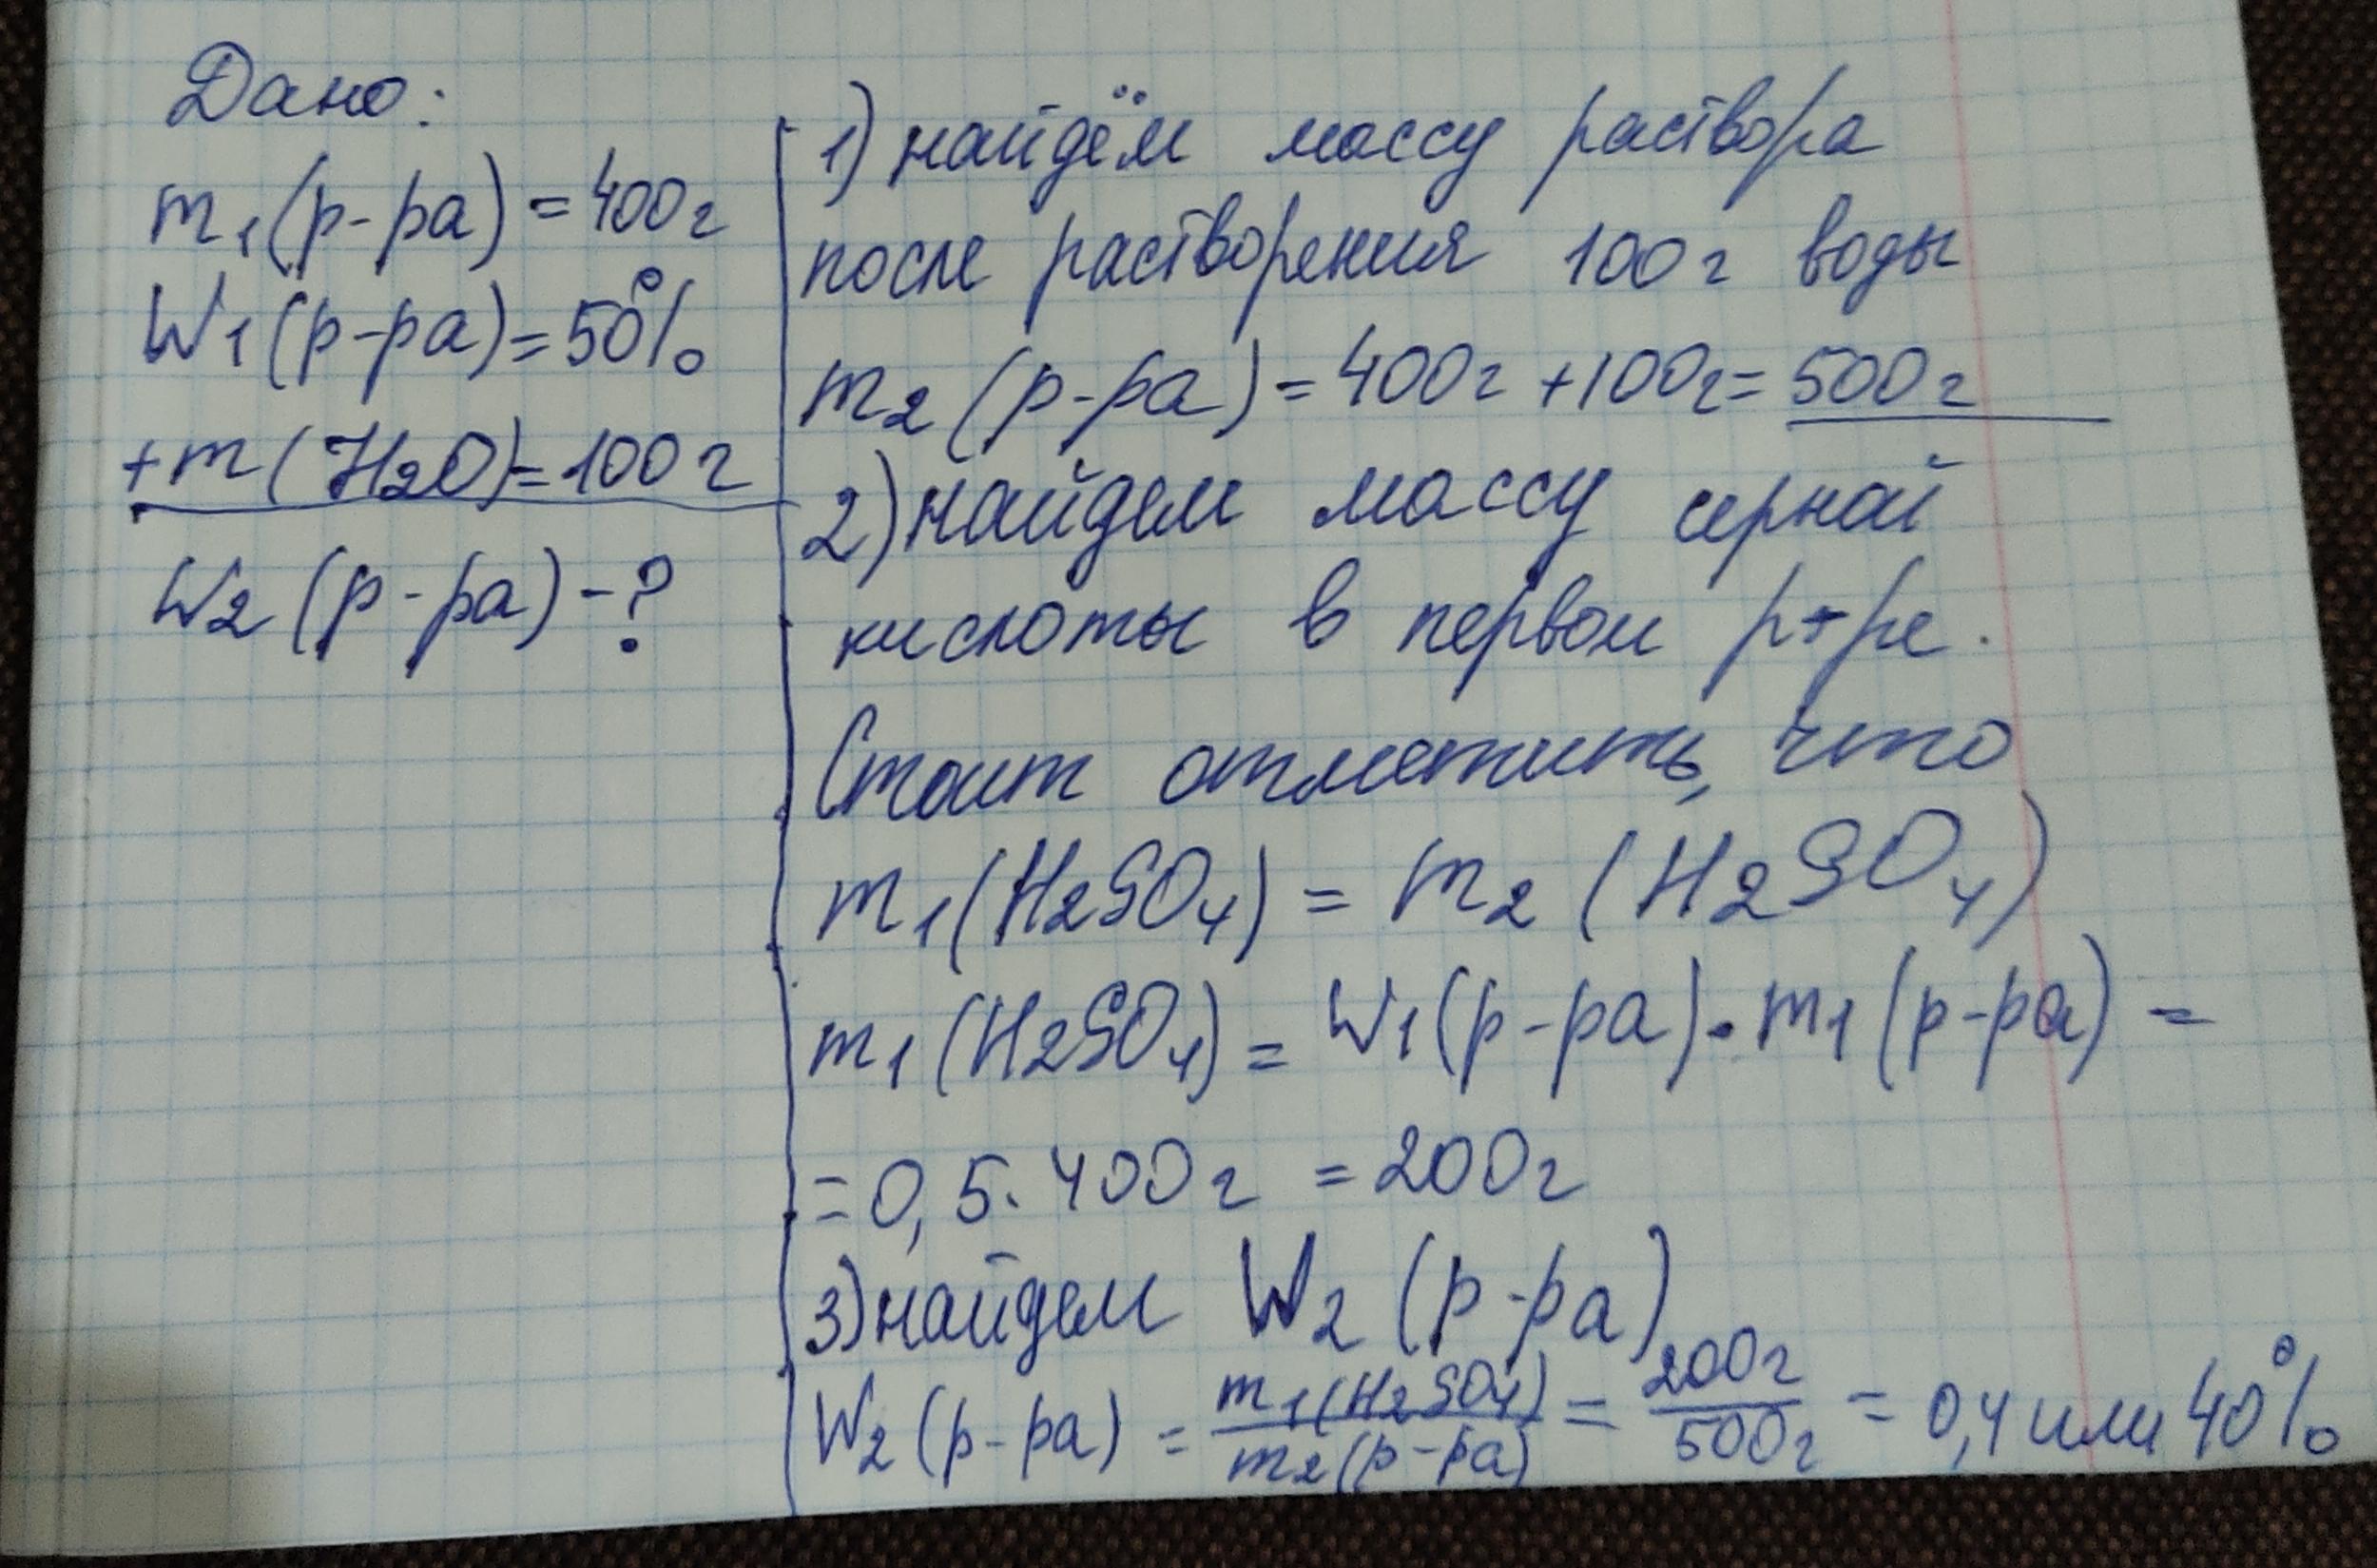 Дано:
m₁(р-ра)=400г
W₁(р-ра)=50%
+m(H₂O)=100г
W₂(р-ра)-?
1) найдём массу раствора
после растворения 100г воды
m₂(р-ра)=400г+100г=500г
2) найдем массу серной
кислоты в первом р-ре.
Стоит отметить, что
m₁(H₂SO₄) = m₂(H₂SO₄)
m₁(H₂SO₄) = W₁(р-ра)·m₁(р-ра) =
=0,5·400г =200г
3) найдем W₂(р-ра)
W₂(р-ра) = m₁(H₂SO₄)/m₂(р-ра) = 200г/500г = 0,4 или 40%